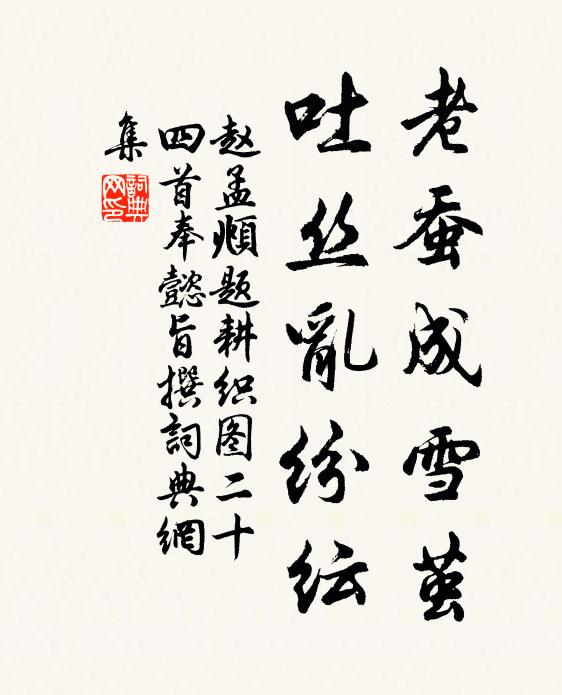 老蚕成雪茧
吐丝亂纷纭
赵孟頫题耕织图二十
四首奉懿旨撰詞典網
集
詞典网印